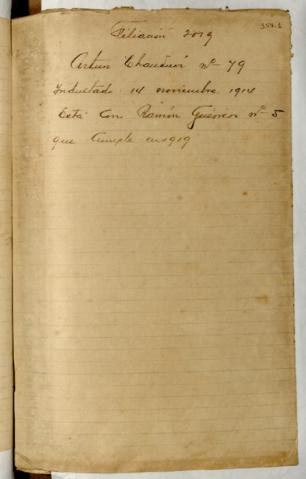 Filiación 2019
Arturo nº 79
Indultado 14 noviembre 1914
Está con Ramón Guerrero nº 5
que cumple en 1919